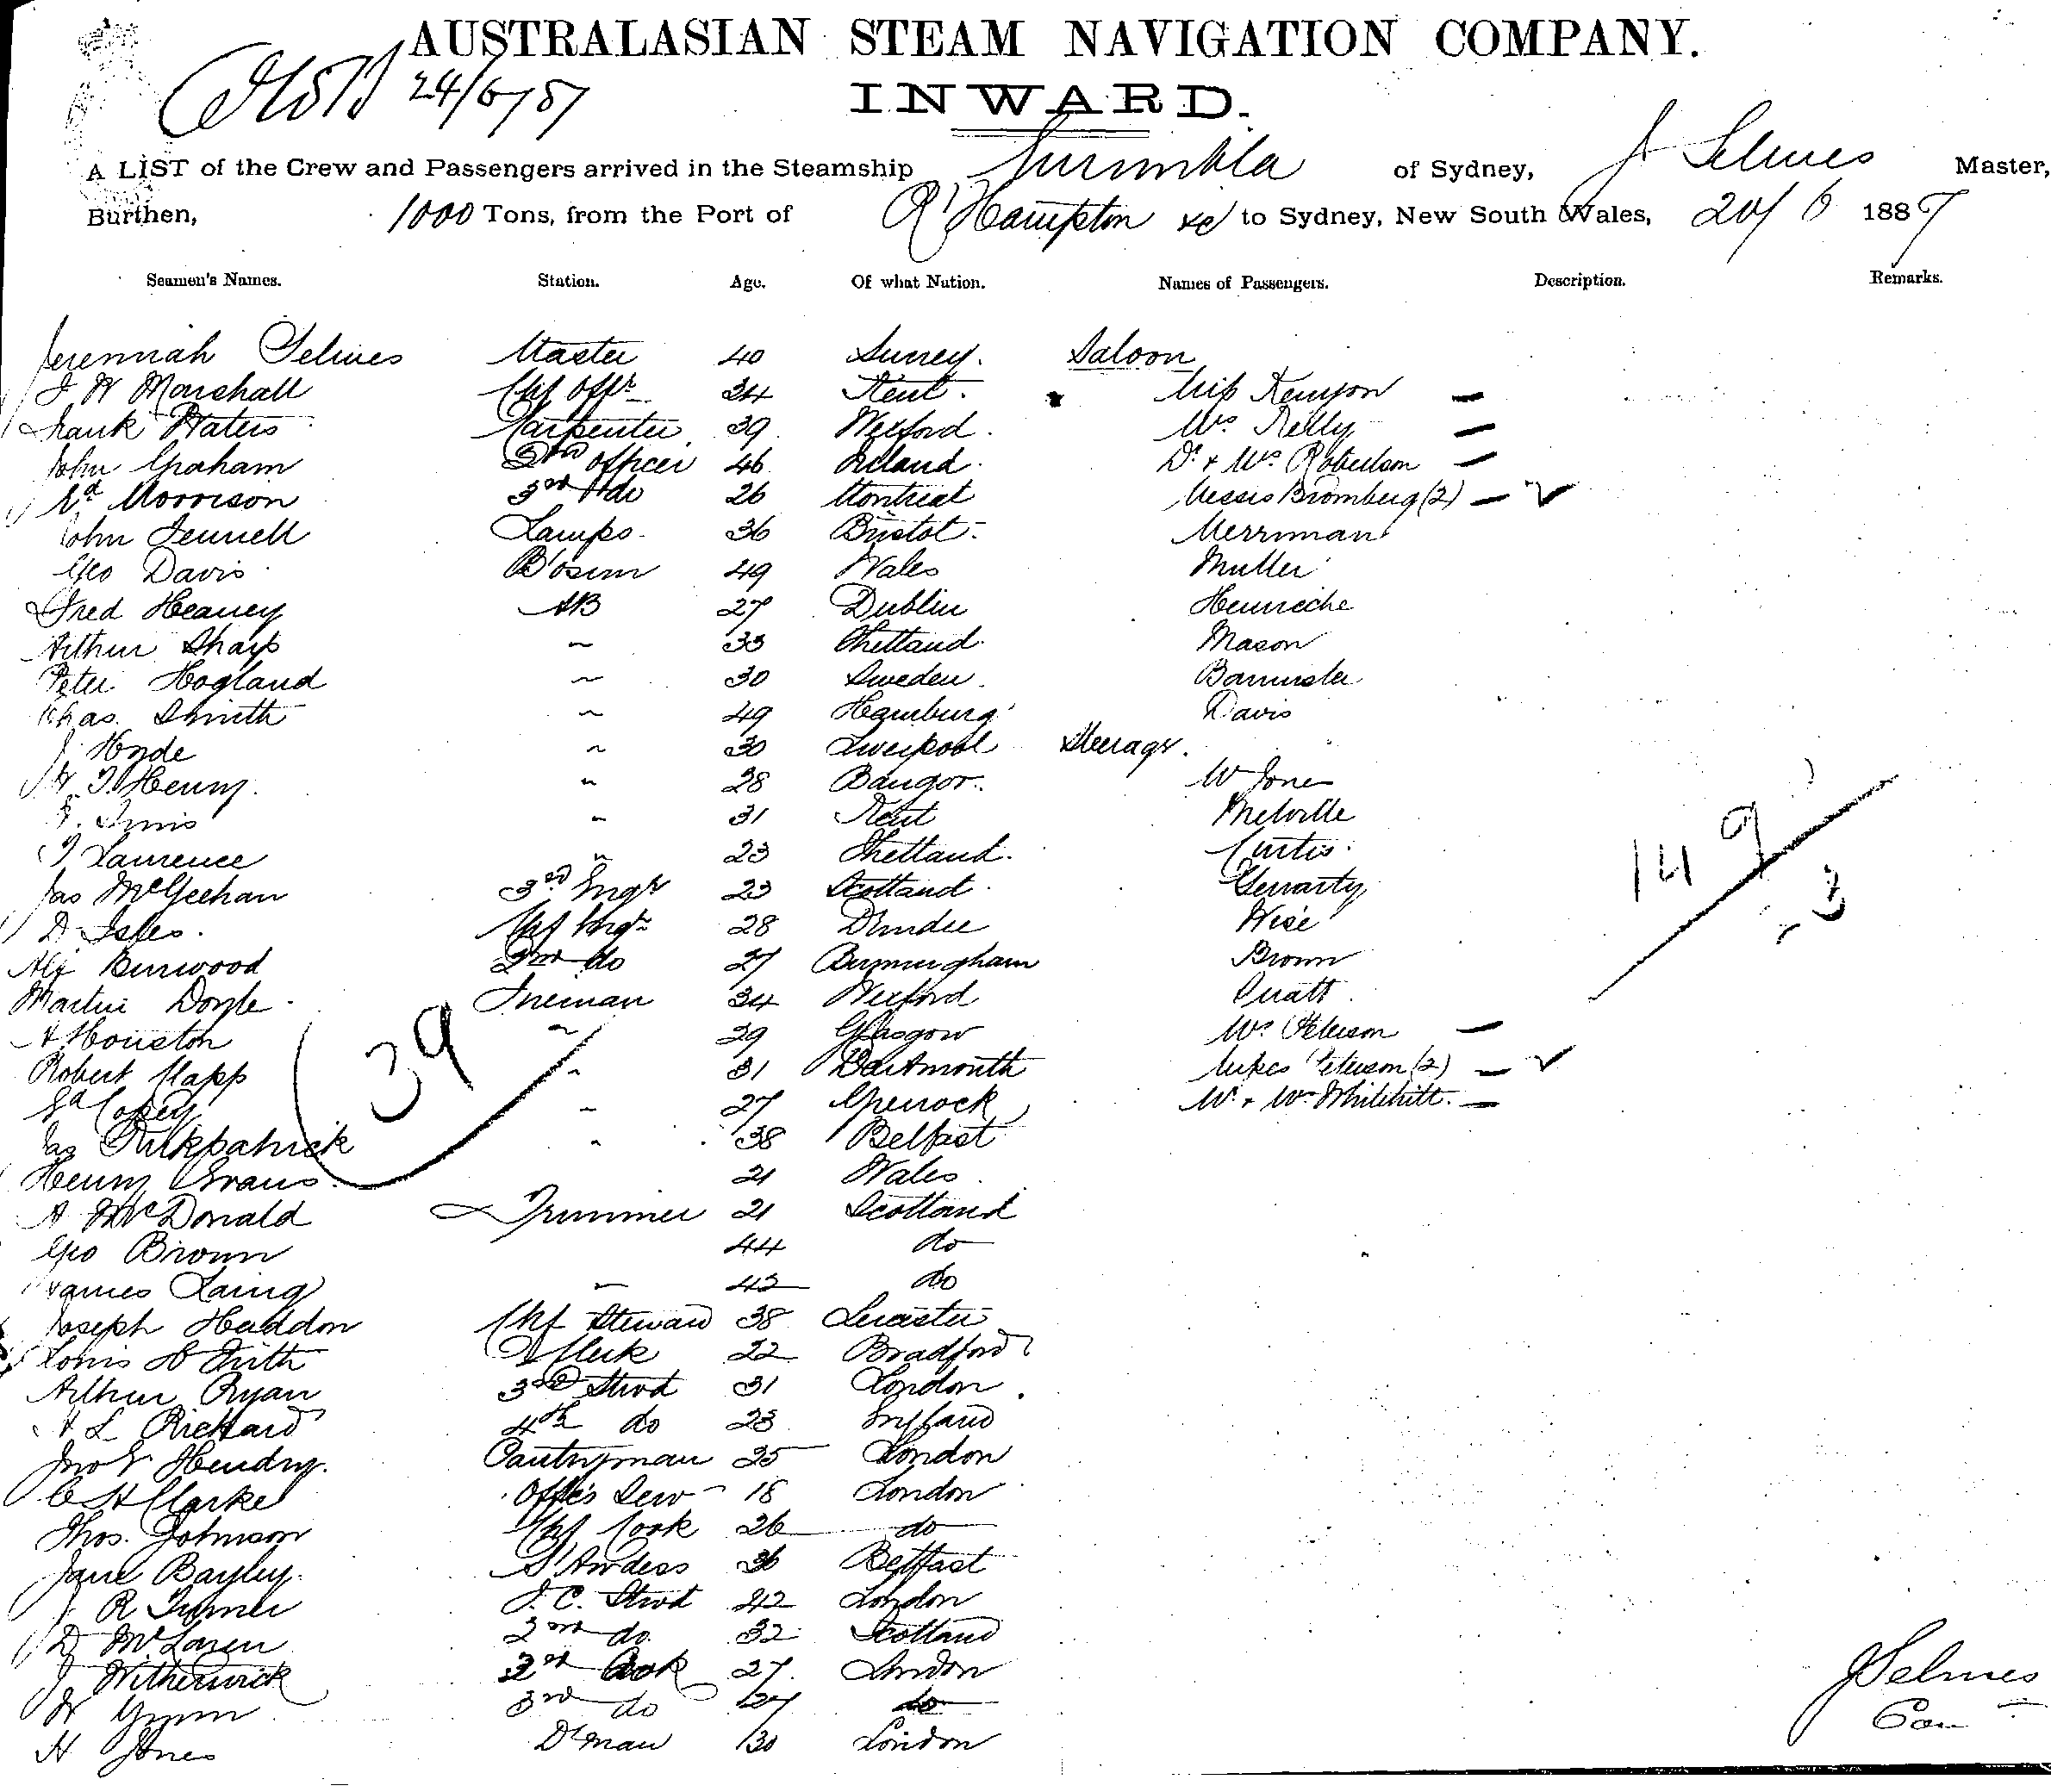 AUSTRALASIAN STEAM NAVIGATION COMPANY.
24/6/87
INWARD.
A LIST of the Crew and Passengers arrived in the Steamship Gunga of Sydney, J Selmes Master,
Burthen, 1000 Tons, from the Port of R'Hampton &c to Sydney, New South Wales, 20/6 1887
Seamen's Names. Station. Age. Of what Nation. Names of Passengers. Description. Remarks.
Jeremiah Selmes Master 40 Surrey. Saloon
J W Marshall Chf Offr 34 Kent. Miss Kenyon
Frank Waters Carpenter 39 Wexford. Mrs Kelly
John Graham 2nd officer 46 Ireland. Dr & Mrs Robertson
Rd Morrison 3rd do 26 Montreal Messrs Bromberg (2)
John Fennell Lamps 36 Bristol. Merriman
Geo Davis B'osun 49 Wales Muller
Fred Heaney AB 27 Dublin Heinreche
Arthur Sharp " 33 Shetland Mason
Peter Hogland " 30 Sweden. Bannister
Chas. Smith " 49 Hamburg Davis
J Hyde " 30 Liverpool Steerage.
W. J. Henry. " 28 Bangor. W Jones
Innis " 31 Kent Melville
J Laurence " 23 Shetland. Curtis
Jas McGeehan 3rd Engr 23 Scotland Gerrarty
D Isles. Chf Engr 28 Dundee Wise
Alf Burwood 2nd do 27 Birmingham Brown
Martin Doyle. Fireman 34 Wexford Pratt
A Houston " 29 Glasgow Mrs Peterson
Robert Clapp " 31 Dartmouth Misses Peterson (2)
Copey " 27 Greenock Mr & Mrs Whitehill.
Jas Kirkpatrick " 38 Belfast
Henry Evans. 21 Wales
A McDonald Trimmer 21 Scotland
Geo Brown 44 do
James Laing " 42 do
Joseph Haddon Chf Steward 38 Leicester
Louis H Frith Clerk 22 Bradford
Arthur Ryan 3rd Stwd 31 London
A L Rickard 4th do 23 England
Jno Hendry. Pantryman 25 London
C H Clarke Offs Serv 18 London
Thos. Johnson Chf Cook 26 do
Jane Bayley. S'ardess 36 Belfast
J R Turner F. C. Stwd 42 London
D McLaren 2nd do. 32 Scotland
J Witherwick 2nd Cook 27. London
W Gynn 3rd do 27 do
H Jones Dk man 30 London
39
149
3
J Selmes